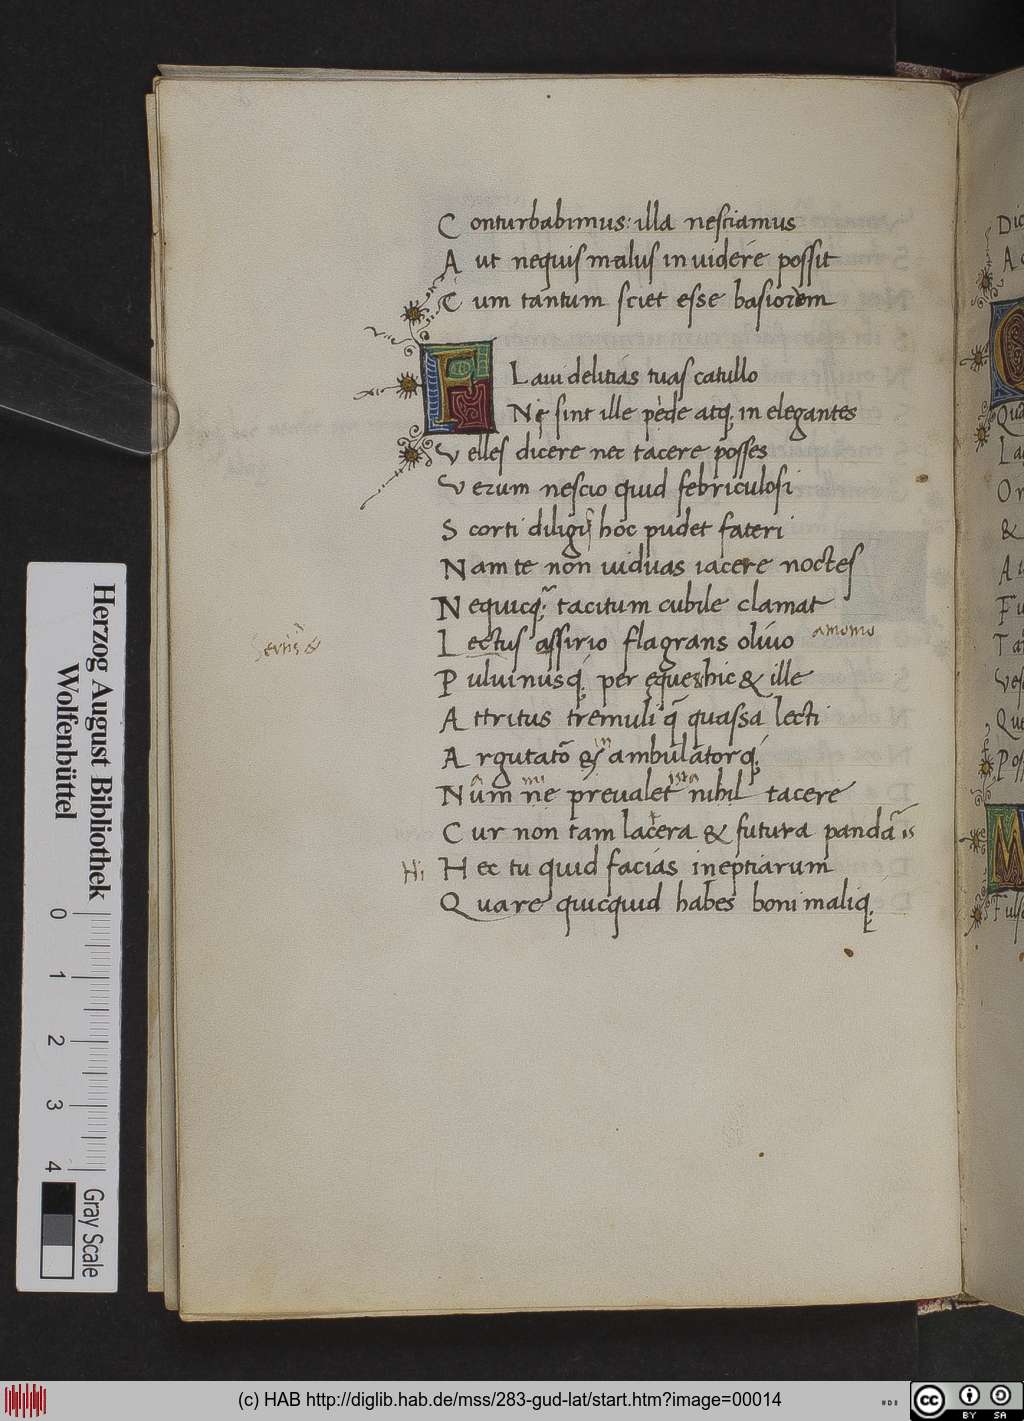 Conturbabimus: illa nesciamus
Aut nequis malus inuidere possit
Cum tantum sciet esse basiorem
FLaui delitias tuas catullo
Ne sint ille pede atq; in elegantes
Velles dicere nec tacere posses
Verum nescio quid febriculosi
Scorti diligis hoc pudet fateri
Nam te non uiduas iacere noctes
Nequicq; tacitum cubile clamat
Lectus assirio flagrans oliuo
amomo
Sertis &
Puluinusq; per eque hic & ille
Attritus tremuliq̃ quassa lecti
Argutatõ & ambulatorq;
Num ne preualet nihil tacere
ista
Cur non tam lacera & futura panda is
Hi
Hec tu quid facias ineptiarum
Quare quicquid habes boni maliq;
Herzog August Bibliothek
Wolfenbüttel
0 1 2 3 4
Gray Scale
(c) HAB http://diglib.hab.de/mss/283-gud-lat/start.htm?image=00014
cc BY SA